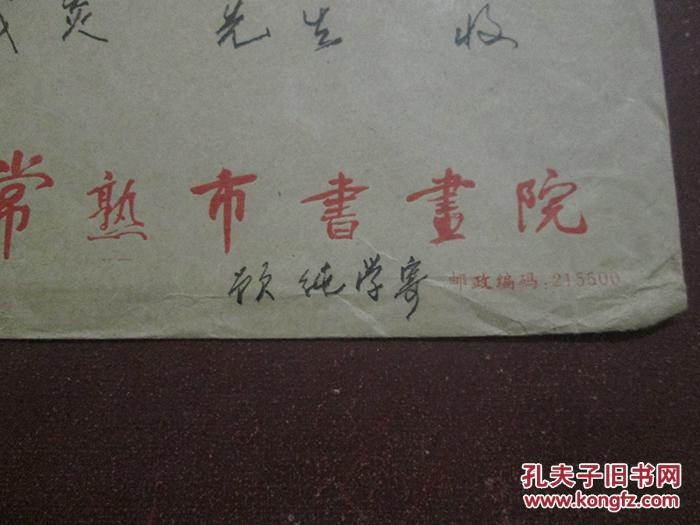 炎 先生 收
常熟市書畫院
顾纯学寄 邮政编码:215500
孔夫子旧书网
www.kongfz.com